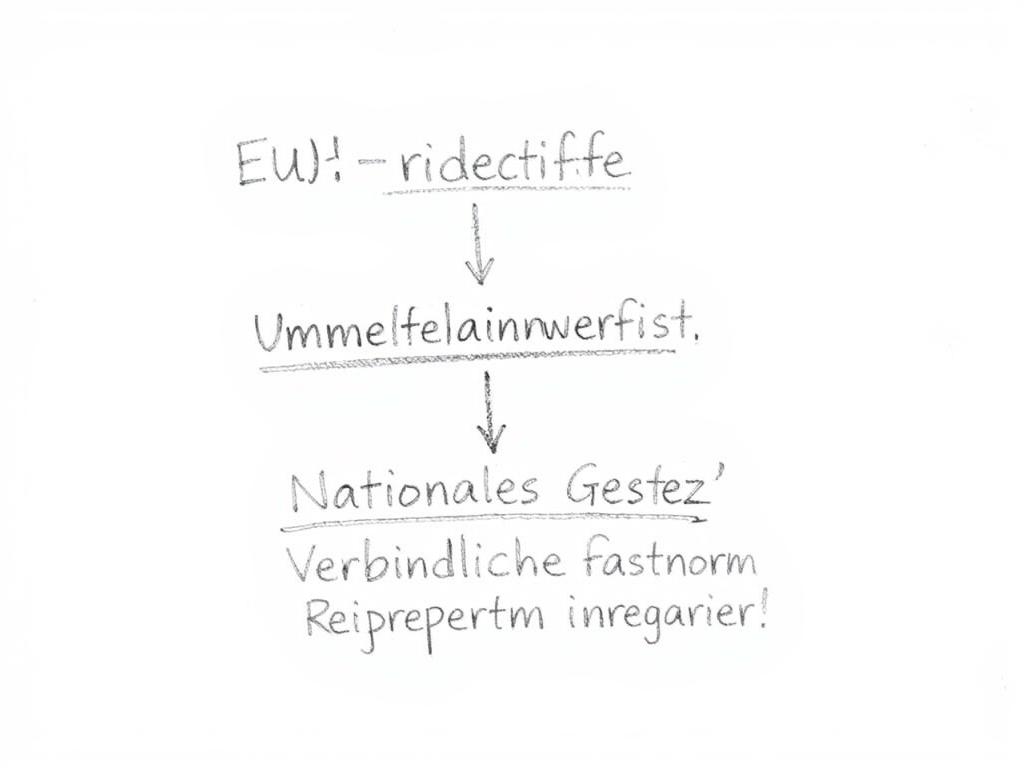 EU)! – ridectiffe
Ummelfelainnwerfist.
Nationales Gestez'
Verbindliche fastnorm
Reiprepertm inregarier!